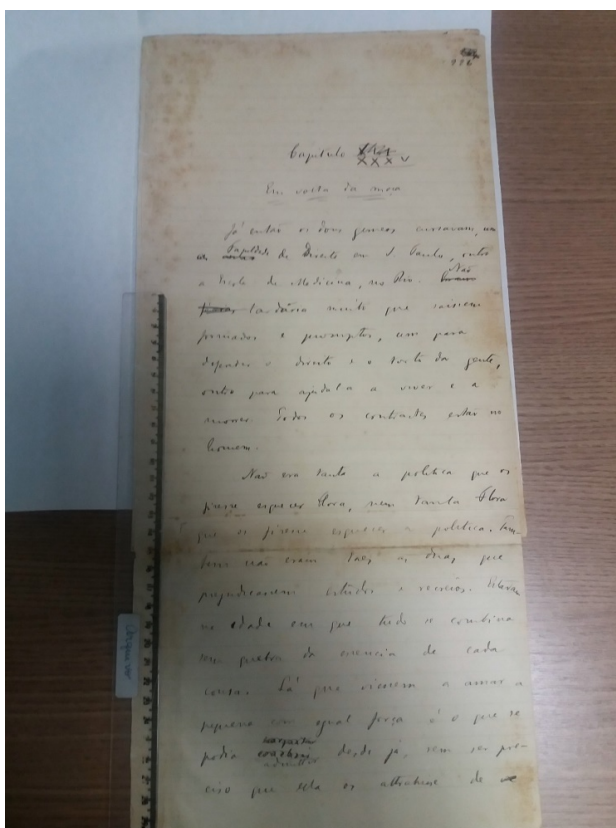 116
Capitulo XXXV
Em volta da moça
Já então os dous gemeos cursavam, um
a Faculdade de Direito em S. Paulo, outro
a Escola de Medicina, no Rio. Não
tardaria muito que saissem
formados e promptos, um para
defender o direito e o torto da gente,
outro para ajudal-a a viver e a
morrer. Todos os contrastes estão no
homem.
Não era tanta a politica que os
fizesse esquecer Flora, nem tanta Flora
que os fizesse esquecer a politica. Tam-
bem não eram taes as duas que
prejudicassem estudos e recreios. Estavam
na edade em que tudo se combina
sem quebra da essencia de cada
cousa. Lá que viessem a amar a
pequena com egual força é o que se
podia admittir desde já, sem ser pre-
ciso que ella os attrahisse de